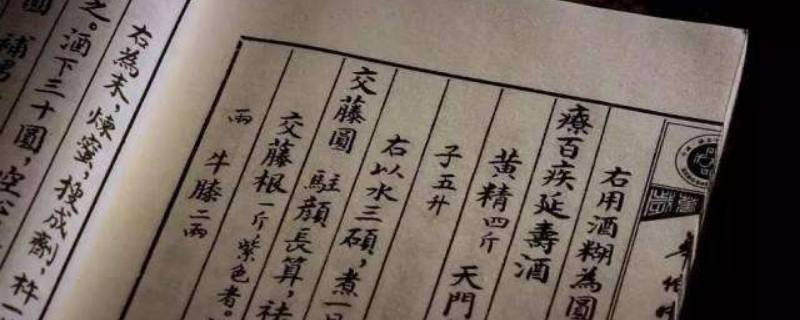 右用酒糊為圓
療百疾延壽酒
黃精四斤 天門
子五升
右以水三碩，煮一
交藤圓 駐顏長算，祛
交藤根一斤，紫色者。
兩 牛膝二兩
右為末，煉蜜，搜成劑，杵一
之。酒下三十圓，空
圓 補男